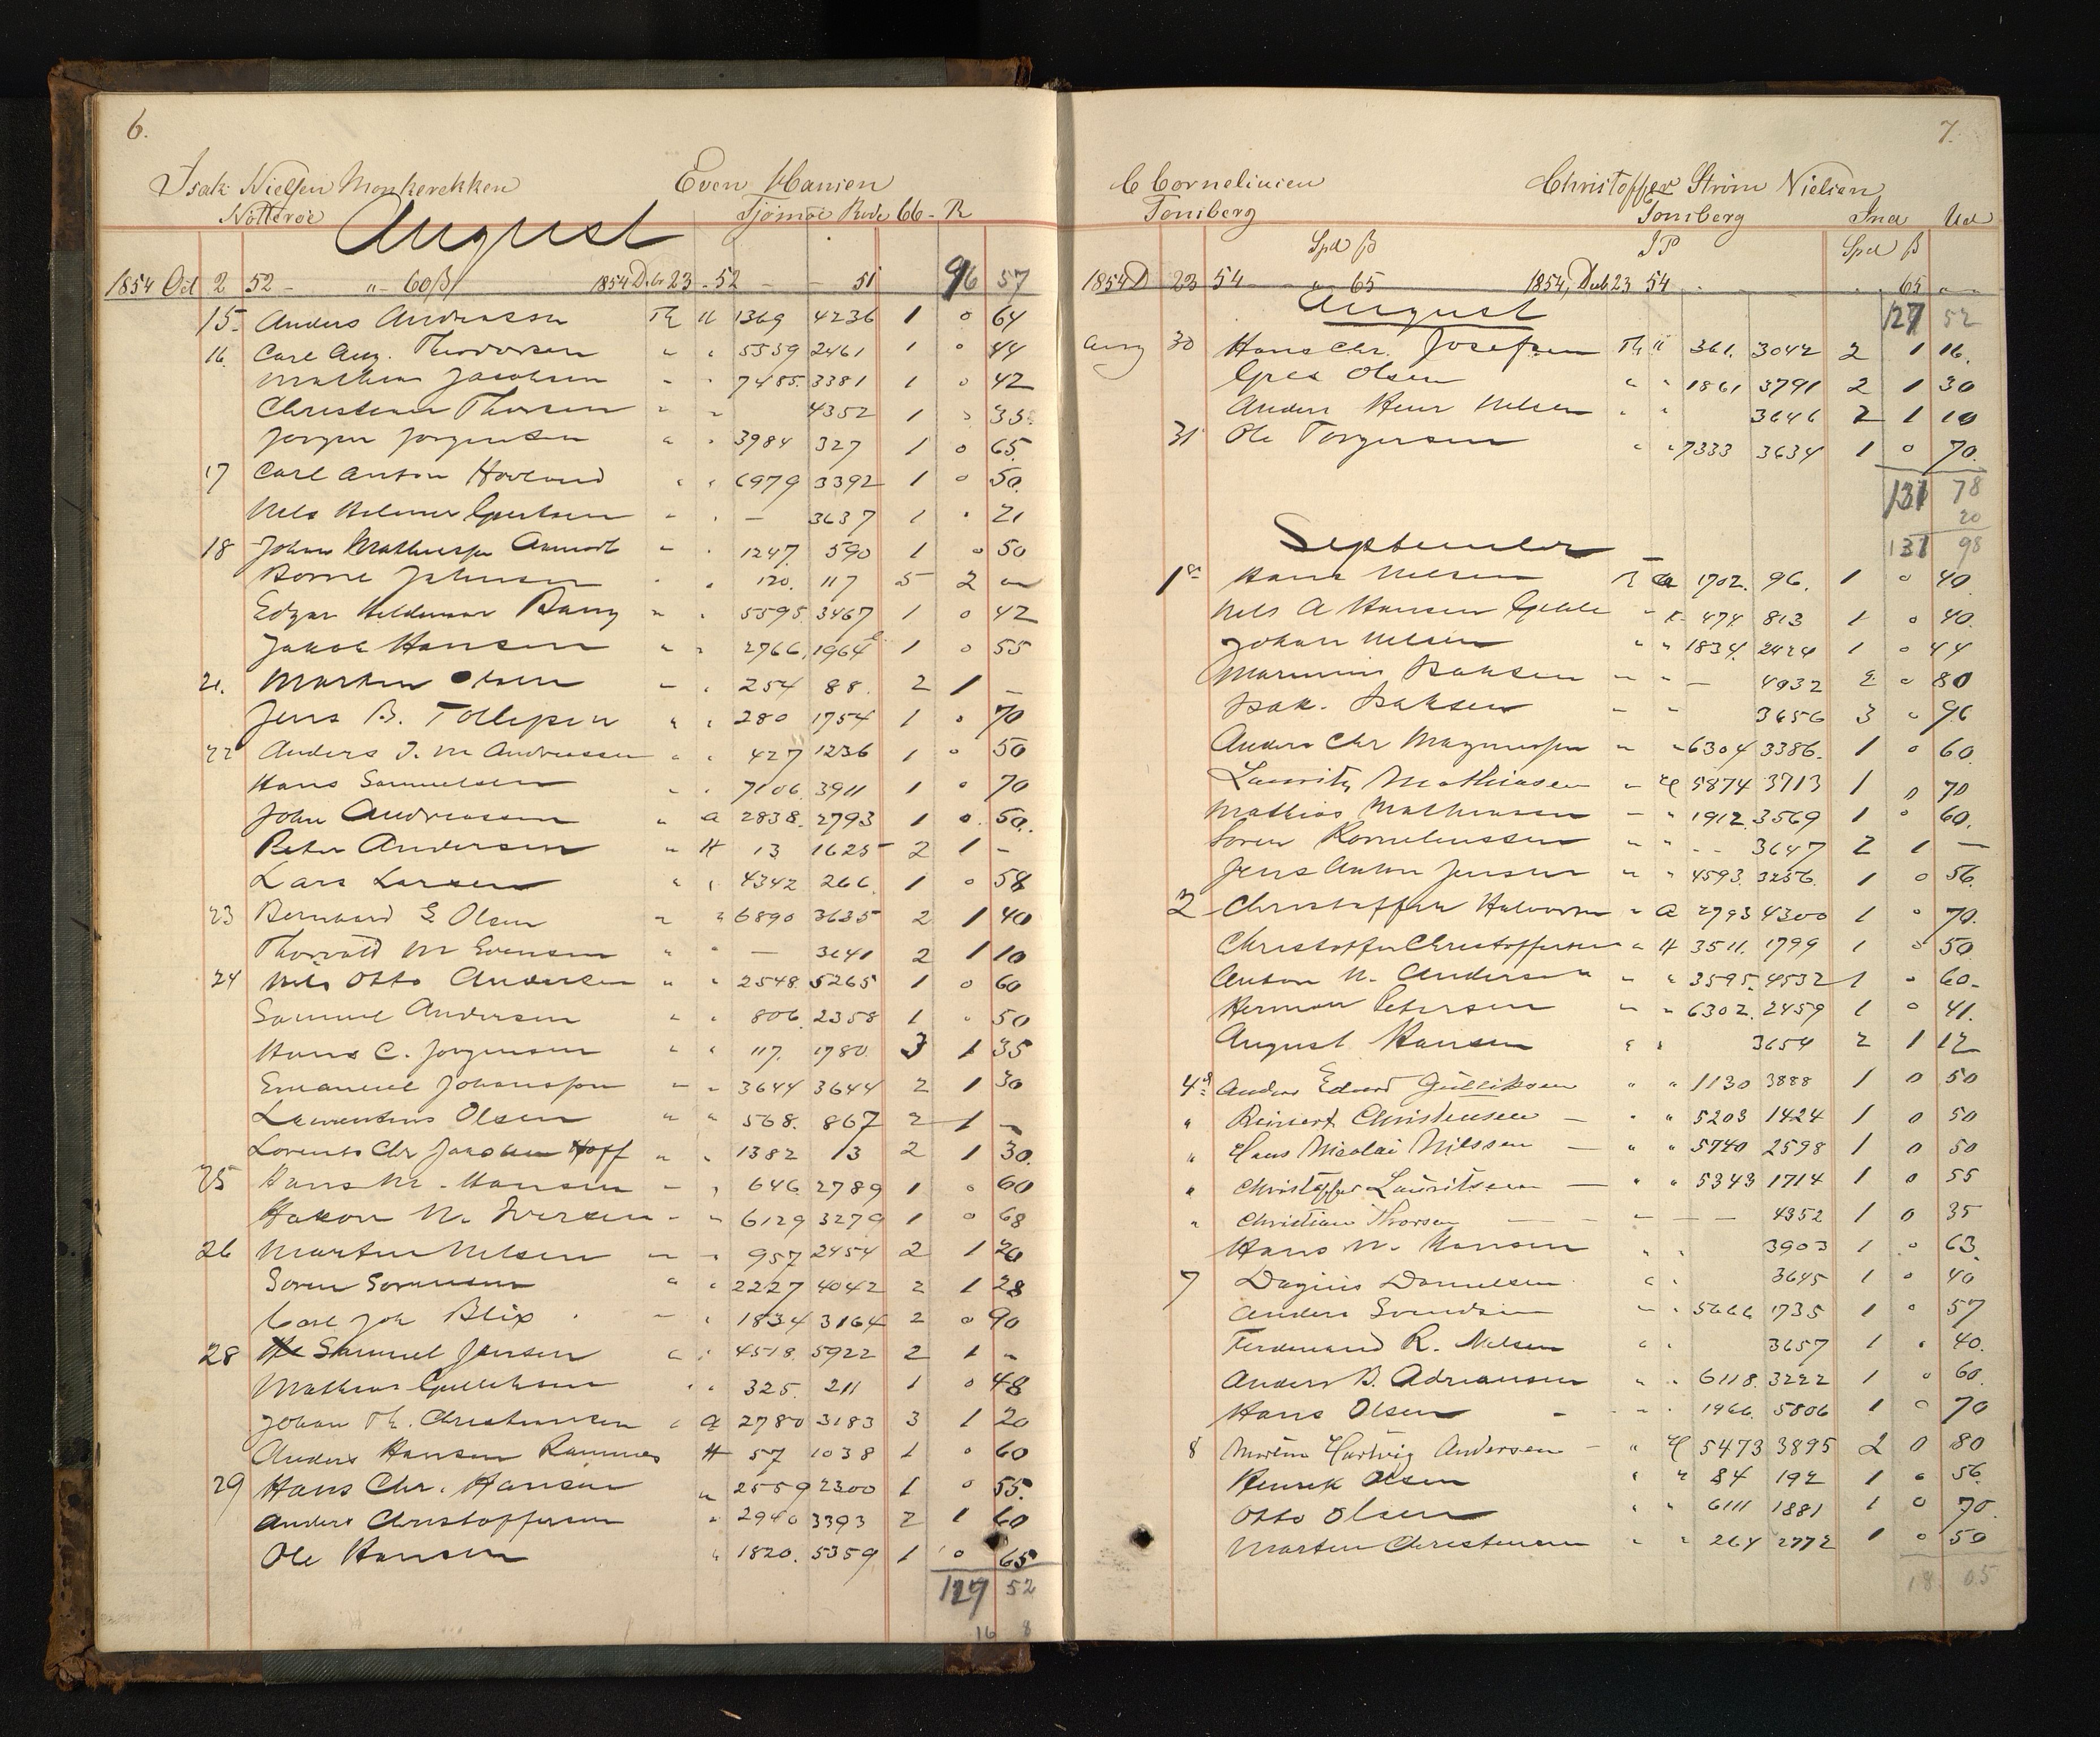 6.
Isak Nielsen Monkerekken Even Hansen
Nötteröe Tjömöe Rode 66 - R
August
1854 Oct 2 52 - " - 60 β 1854 Debr 23 - 52 - - 51 96 57
15 Anders Andreassen Th H 1369 4236 1 0 64
16 Carl Aug. Thorvorsen " " 5559 2461 1 0 44
Mathias Jacobsen " " 7485 3381 1 0 42
Christian Thorsen " " 4352 1 0 35
Jørgen Jørgensen " " 3984 327 1 0 65
17 Carl Anton Hovland " " 6979 3392 1 0 50
Nels Helmer " " — 3637 1 " 21
18 Johan Mathiesen " " 1247 590 1 0 50
Johnsen " " 120. 117 5 2 "
Edgar Valdemar Bang " " 5595 3467 1 0 42
Jakob Hansen " " 2766 1964 1 0 55
21. Martin Olsen " " 254 88. 2 1 —
Jens B. Tollefsen " " 280 1754 1 0 70
22 Anders I. M Andreassen " " 427 1236 1 0 50
Hans Samuelsen " " 7106. 3911 1 0 70
John Andreassen " a 2838. 2793 1 0. 50.
Peter Andersen " H 13 1625 2 1 -
Lars Larsen " " 4342 266. 1 0 58
23 Bernhard E Olsen " " 6890 3635 2 1 40
Thorvald M Evensen " " — 3641 2 1 10
24 Nels Otto Andersen " " 2548. 5265 1 0 60
Samuel Andersen " " 806. 2358 1 " 50
Hans C. Jørgensen " " 117. 1780. 3 1 35
Emanuel Johansen " " 3644 3644 2 1 30
Laurentius Olsen " " 568. 867 2 1 —
Lorents Chr Jacobsen Hoff " " 1382 13 2 1 30.
25 Hans M. Hansen " " 646. 2789 1 0 60
Hakon N. Iversen " " 6129 3279 1 0 68
26 Martin Nelsen " " 957 2454 2 1 20
Soren Sorensen " " 2227 4042 2 1 28
Carl Joh Blix " " 1834 3164 2 0 90
28 Samuel Jensen " " 4518. 5922 2 1 -
Mathias Gulliksen " " 325. 211 1 0 48
Johan Th. Christensen " a 2780 3183 3 1 20
Anders Hansen Ramnes H 57 1038 1 0 60
29 Hans Chr. Hansen " 2559 2300 1 0 55.
Anders Christoffersen " 2940 3393 2 1 60
Ole Hansen " 1820. 5359 1 0 65
127 52
16 8
7.
C Corneliusen Christoffer Strøm Nielsen
Tonsberg Tonsberg Ind Ud
Spd β Spd β
1854 D 23 54 — 65 1854, Deb 23 54 65 "
August 127 52
Aug 30 Hans Chr. Josefsen Th H 361. 3042 2 1 16.
Olsen " " 1861 3791 2 1 30
Anders Henr Nelsen " " 3646 2 1 10
31 Ole Torgersen " " 7333 3634 1 0 70.
131 78
20
September 131 98
1st Hans Nelsen Th a 1702. 96. 1 0 40
Nels A Hansen " H 474 813 1 0 40.
Johan Nelsen " " 1834. 2424 1 0 44
Marinius Isaksen " " — 4932 2 0 80
Isak. Isaksen " " 3656 3 0 96
Anders Chr Magnussen " " 6304 3386. 1 0 60.
Lauritz Mathiasen " H 5874 3713 1 0 70
Mathias Mathiasen " " 1912. 3569 1 0 60.
Soren Korneliussen " " - - 3647 2 1 —
Jens Anton Jensen " " 4593. 3256. 1 0 56.
2 Christoffer Halvorsen " a 2793 4300 1 0 70.
Christoffer Christoffersen " H 3511. 1799 1 0 50.
Anton N. Andersen " " 3595. 4532 1 0 60.
Herman Petersen " " 6302. 2459 1 0 41.
August Hansen " " 3654 2 1 12
4d Anders Edvard Gulliksen " " 1130 3888 1 0 50
" Reinert Christensen — " " 5203 1424 1 0 50
" Hans Nicolai Nilssen — " " 5740 2598 1 0 50
" Christoffer Lauritsen — " " 5343 1714 1 0 55
" Christian Thorsen — — — 4352 1 0 35
Hans M. Hansen " " 3903 1 0 63.
7 Daginius Danielsen " " 3645 1 0 40
Anders Svendsen " " 5666 1735 1 0 57
Ferdinand R. Nelsen " " 3657 1 0 40.
Anders B. Adriansen " " 6118. 3222 1 0 60.
Hans Olsen - " " 1966. 5806 1 0 70
8 Martin Hartvig Andersen - " H 5473 3895 2 0 80
Henrik Olsen " " 84 192 1 0 56.
Otto Olsen " " 6111 1881 1 0 70.
Morten Christensen " " 264 2772 1 0 50
18 05